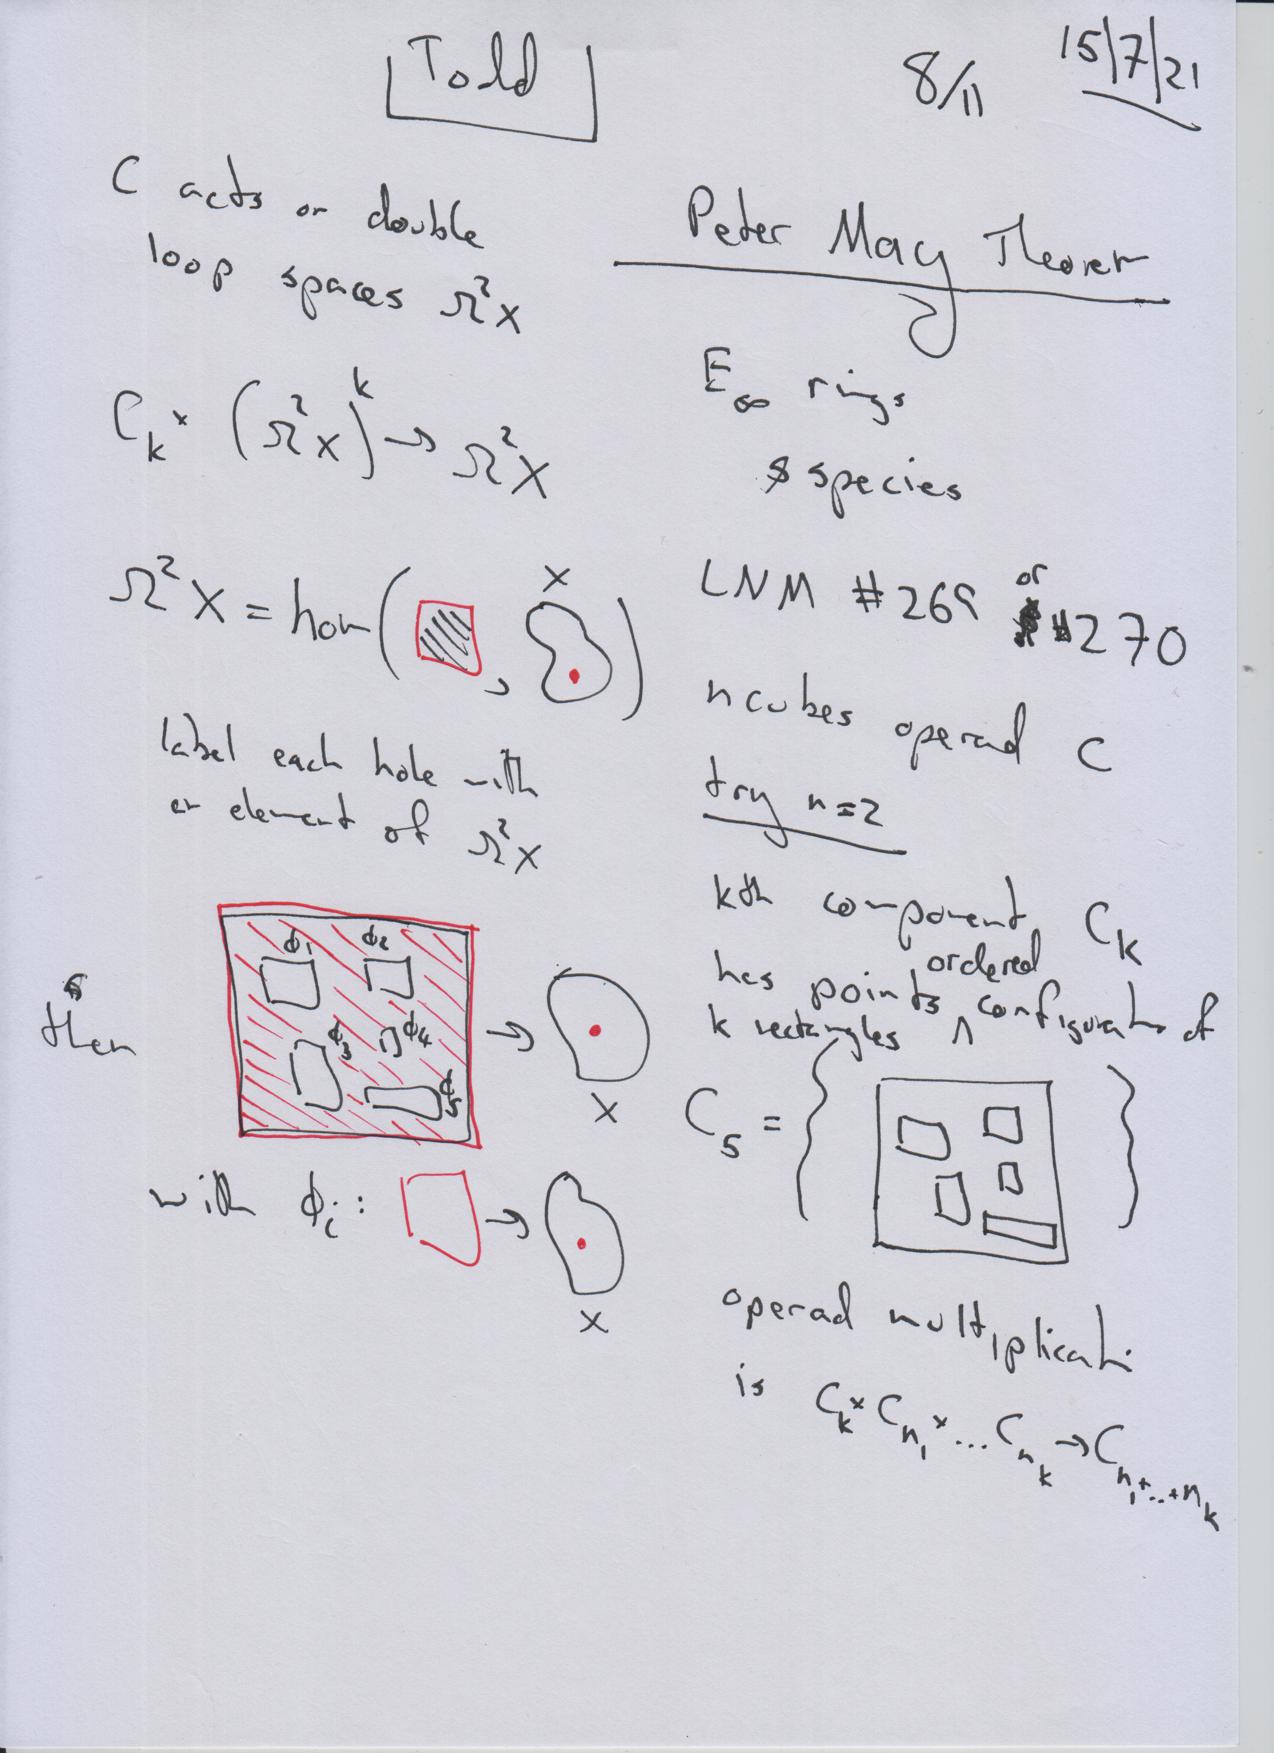 Todd
8/11
15/7/21
C acts on double
loop spaces Ω²X
C_k × (Ω²X)^k → Ω²X
Ω²X = hom( , X )
label each hole with
an element of Ω²X
φ1 φ2
φ3 φ4
φ5
then → X
with φi: → X
Peter May Theorem
E∞ rings
species
LNM #269 or #270
n cubes operad C
try n=2
kth component C_k
has points ordered configuration of
k rectangles ∧
C_5 = { }
operad multiplication
is C_k × C_n1 × ... C_nk → C_n1+..+nk